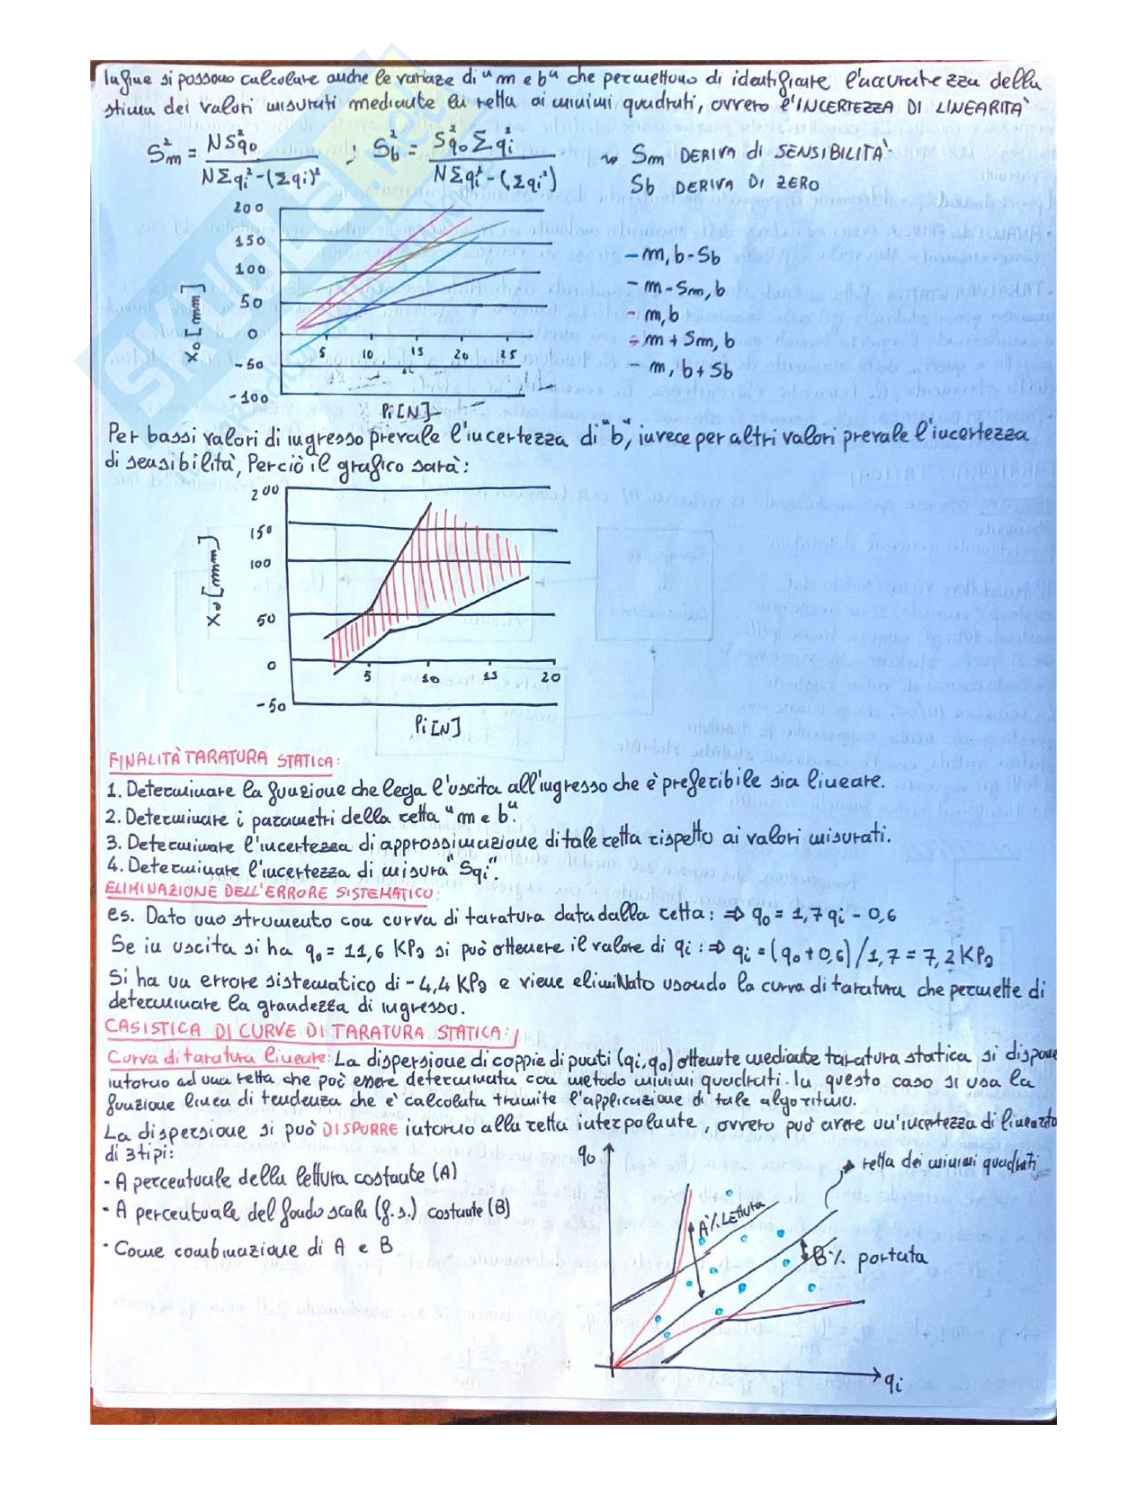 Infine si possono calcolare anche le varianze di "m e b" che permettono di identificare l'accuratezza della
stima dei valori misurati mediante la retta ai minimi quadrati, ovvero l'INCERTEZZA DI LINEARITÀ
S²m = NS²q0 / NΣqi²-(Σqi)² ; S²b = S²q0 Σqi² / NΣqi²-(Σqi²) ~> Sm DERIVA di SENSIBILITÀ
Sb DERIVA DI ZERO
200
150
100
50
0
-50
-100
X0 [mm]
5 10 15 20 25
Pi[N]
- m, b-Sb
- m-Sm, b
- m, b
- m+Sm, b
- m, b+Sb
Per bassi valori di ingresso prevale l'incertezza di "b", invece per altri valori prevale l'incertezza
di sensibilità, Perciò il grafico sarà:
200
150
100
50
0
-50
X0 [mm]
5 10 15 20
Pi[N]
FINALITÀ TARATURA STATICA:
1. Determinare la funzione che lega l'uscita all'ingresso che è preferibile sia lineare.
2. Determinare i parametri della retta "m e b".
3. Determinare l'incertezza di approssimazione di tale retta rispetto ai valori misurati.
4. Determinare l'incertezza di misura "Sqi".
ELIMINAZIONE DELL'ERRORE SISTEMATICO:
es. Dato uno strumento con curva di taratura data dalla retta: => q0 = 1,7qi - 0,6
Se in uscita si ha q0 = 11,6 KPa si può ottenere il valore di qi: => qi = (q0+0,6)/1,7 = 7,2 KPa
Si ha un errore sistematico di -4,4 KPa e viene eliminato usando la curva di taratura che permette di
determinare la grandezza di ingresso.
CASISTICA DI CURVE DI TARATURA STATICA:
Curva di taratura lineare: La dispersione di coppie di punti (qi,q0) ottenute mediante taratura statica si dispone
intorno ad una retta che può essere determinata con metodo minimi quadrati. In questo caso si usa la
funzione linea di tendenza che è calcolata tramite l'applicazione di tale algoritmo.
La dispersione si può DISPORRE intorno alla retta interpolante, ovvero può avere un'incertezza di linearità
di 3 tipi:
- A percentuale della lettura costante (A)
- A percentuale del fondo scala (f.s.) costante (B)
- Come combinazione di A e B
q0
retta dei minimi quadrati
A% Lettura
B% portata
qi